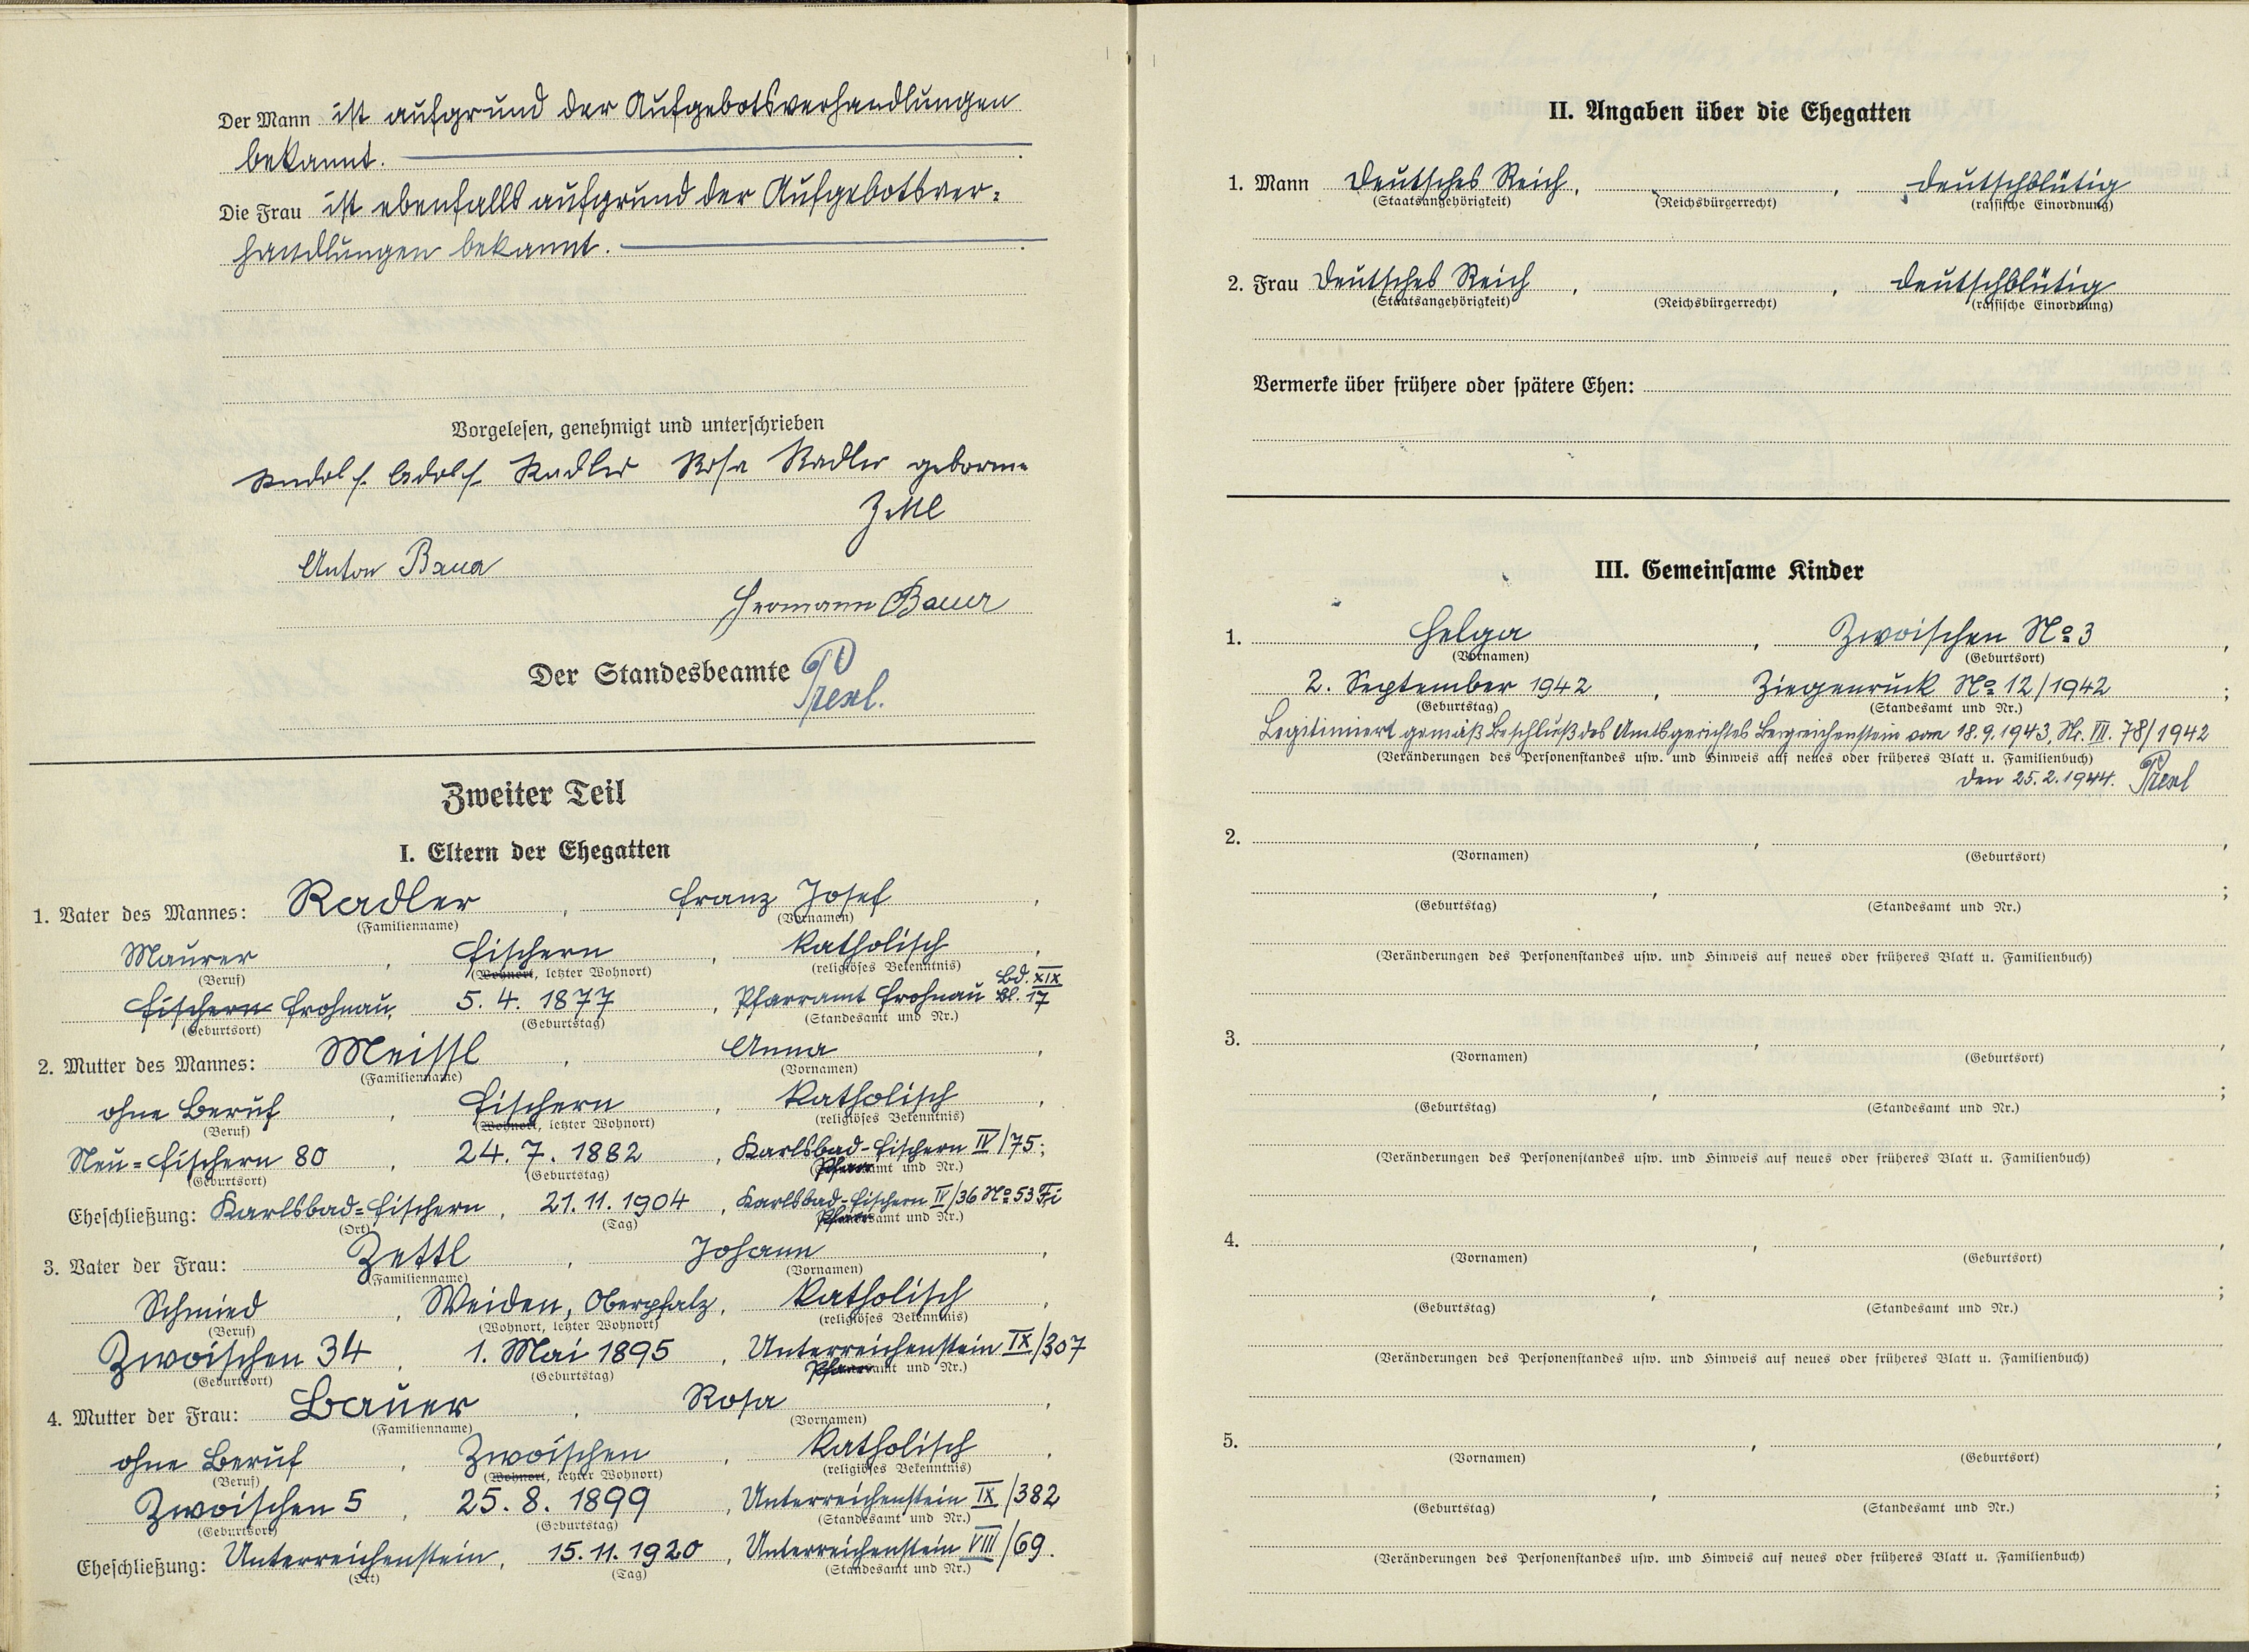 Der Mann ist aufgrund der Aufgebotsverhandlungen
bekannt.
Die Frau ist ebenfalls aufgrund der Aufgebotsver=
handlungen bekannt.
Vorgelesen, genehmigt und unterschrieben
Rudolf Adolf Radler Rosa Radler geborne
Zettl
Anton Bauer
Hermann Bauer
Der Standesbeamte
Prexl.
Zweiter Teil
I. Eltern der Ehegatten
1. Vater des Mannes: Radler, Franz Josef,
(Familienname) (Vornamen)
Maurer, Fischern, katholisch,
(Beruf) (Wohnort, letzter Wohnort) (religiöses Bekenntnis)
Fischern Frohnau, 5. 4. 1877, Pfarramt Frohnau Bd. XIX Bl. 17
(Geburtsort) (Geburtstag) (Standesamt und Nr.)
2. Mutter des Mannes: Meissl, Anna,
(Familienname) (Vornamen)
ohne Beruf, Fischern, katholisch,
(Beruf) (Wohnort, letzter Wohnort) (religiöses Bekenntnis)
Neu=Fischern 80, 24. 7. 1882, Karlsbad-Fischern IV/75;
(Geburtsort) (Geburtstag) (Pfarramt und Nr.)
Eheschließung: Karlsbad=Fischern, 21. 11. 1904, Karlsbad=Fischern IV/36 No 53 Fi
(Ort) (Tag) (Pfarramt und Nr.)
3. Vater der Frau: Zettl, Johann,
(Familienname) (Vornamen)
Schmied, Weiden, Oberpfalz, katholisch,
(Beruf) (Wohnort, letzter Wohnort) (religiöses Bekenntnis)
Zwoischen 34, 1. Mai 1895, Unterreichenstein IX/307
(Geburtsort) (Geburtstag) (Pfarramt und Nr.)
4. Mutter der Frau: Bauer, Rosa,
(Familienname) (Vornamen)
ohne Beruf, Zwoischen, katholisch,
(Beruf) (Wohnort, letzter Wohnort) (religiöses Bekenntnis)
Zwoischen 5, 25. 8. 1899, Unterreichenstein IX/382
(Geburtsort) (Geburtstag) (Standesamt und Nr.)
Eheschließung: Unterreichenstein, 15. 11. 1920, Unterreichenstein VIII/69.
(Ort) (Tag) (Standesamt und Nr.)
II. Angaben über die Ehegatten
1. Mann Deutsches Reich, , deutschblütig
(Staatsangehörigkeit) (Reichsbürgerrecht) (rassische Einordnung)
2. Frau Deutsches Reich, , deutschblütig
(Staatsangehörigkeit) (Reichsbürgerrecht) (rassische Einordnung)
Vermerke über frühere oder spätere Ehen:
III. Gemeinsame Kinder
1. Helga, Zwoischen No 3,
(Vornamen) (Geburtsort)
2. September 1942, Ziegenruck No 12/1942;
(Geburtstag) (Standesamt und Nr.)
Legitimiert gemäß Beschluß des Amtsgerichtes Bergreichenstein vom 18.9.1943, Nr. VIII. 78/1942
(Veränderungen des Personenstandes usw. und Hinweis auf neues oder früheres Blatt u. Familienbuch)
den 25.2.1944. Prexl
2. , ,
(Vornamen) (Geburtsort)
, ;
(Geburtstag) (Standesamt und Nr.)
(Veränderungen des Personenstandes usw. und Hinweis auf neues oder früheres Blatt u. Familienbuch)
3. , ,
(Vornamen) (Geburtsort)
, ;
(Geburtstag) (Standesamt und Nr.)
(Veränderungen des Personenstandes usw. und Hinweis auf neues oder früheres Blatt u. Familienbuch)
4. , ,
(Vornamen) (Geburtsort)
, ;
(Geburtstag) (Standesamt und Nr.)
(Veränderungen des Personenstandes usw. und Hinweis auf neues oder früheres Blatt u. Familienbuch)
5. , ,
(Vornamen) (Geburtsort)
, ;
(Geburtstag) (Standesamt und Nr.)
(Veränderungen des Personenstandes usw. und Hinweis auf neues oder früheres Blatt u. Familienbuch)